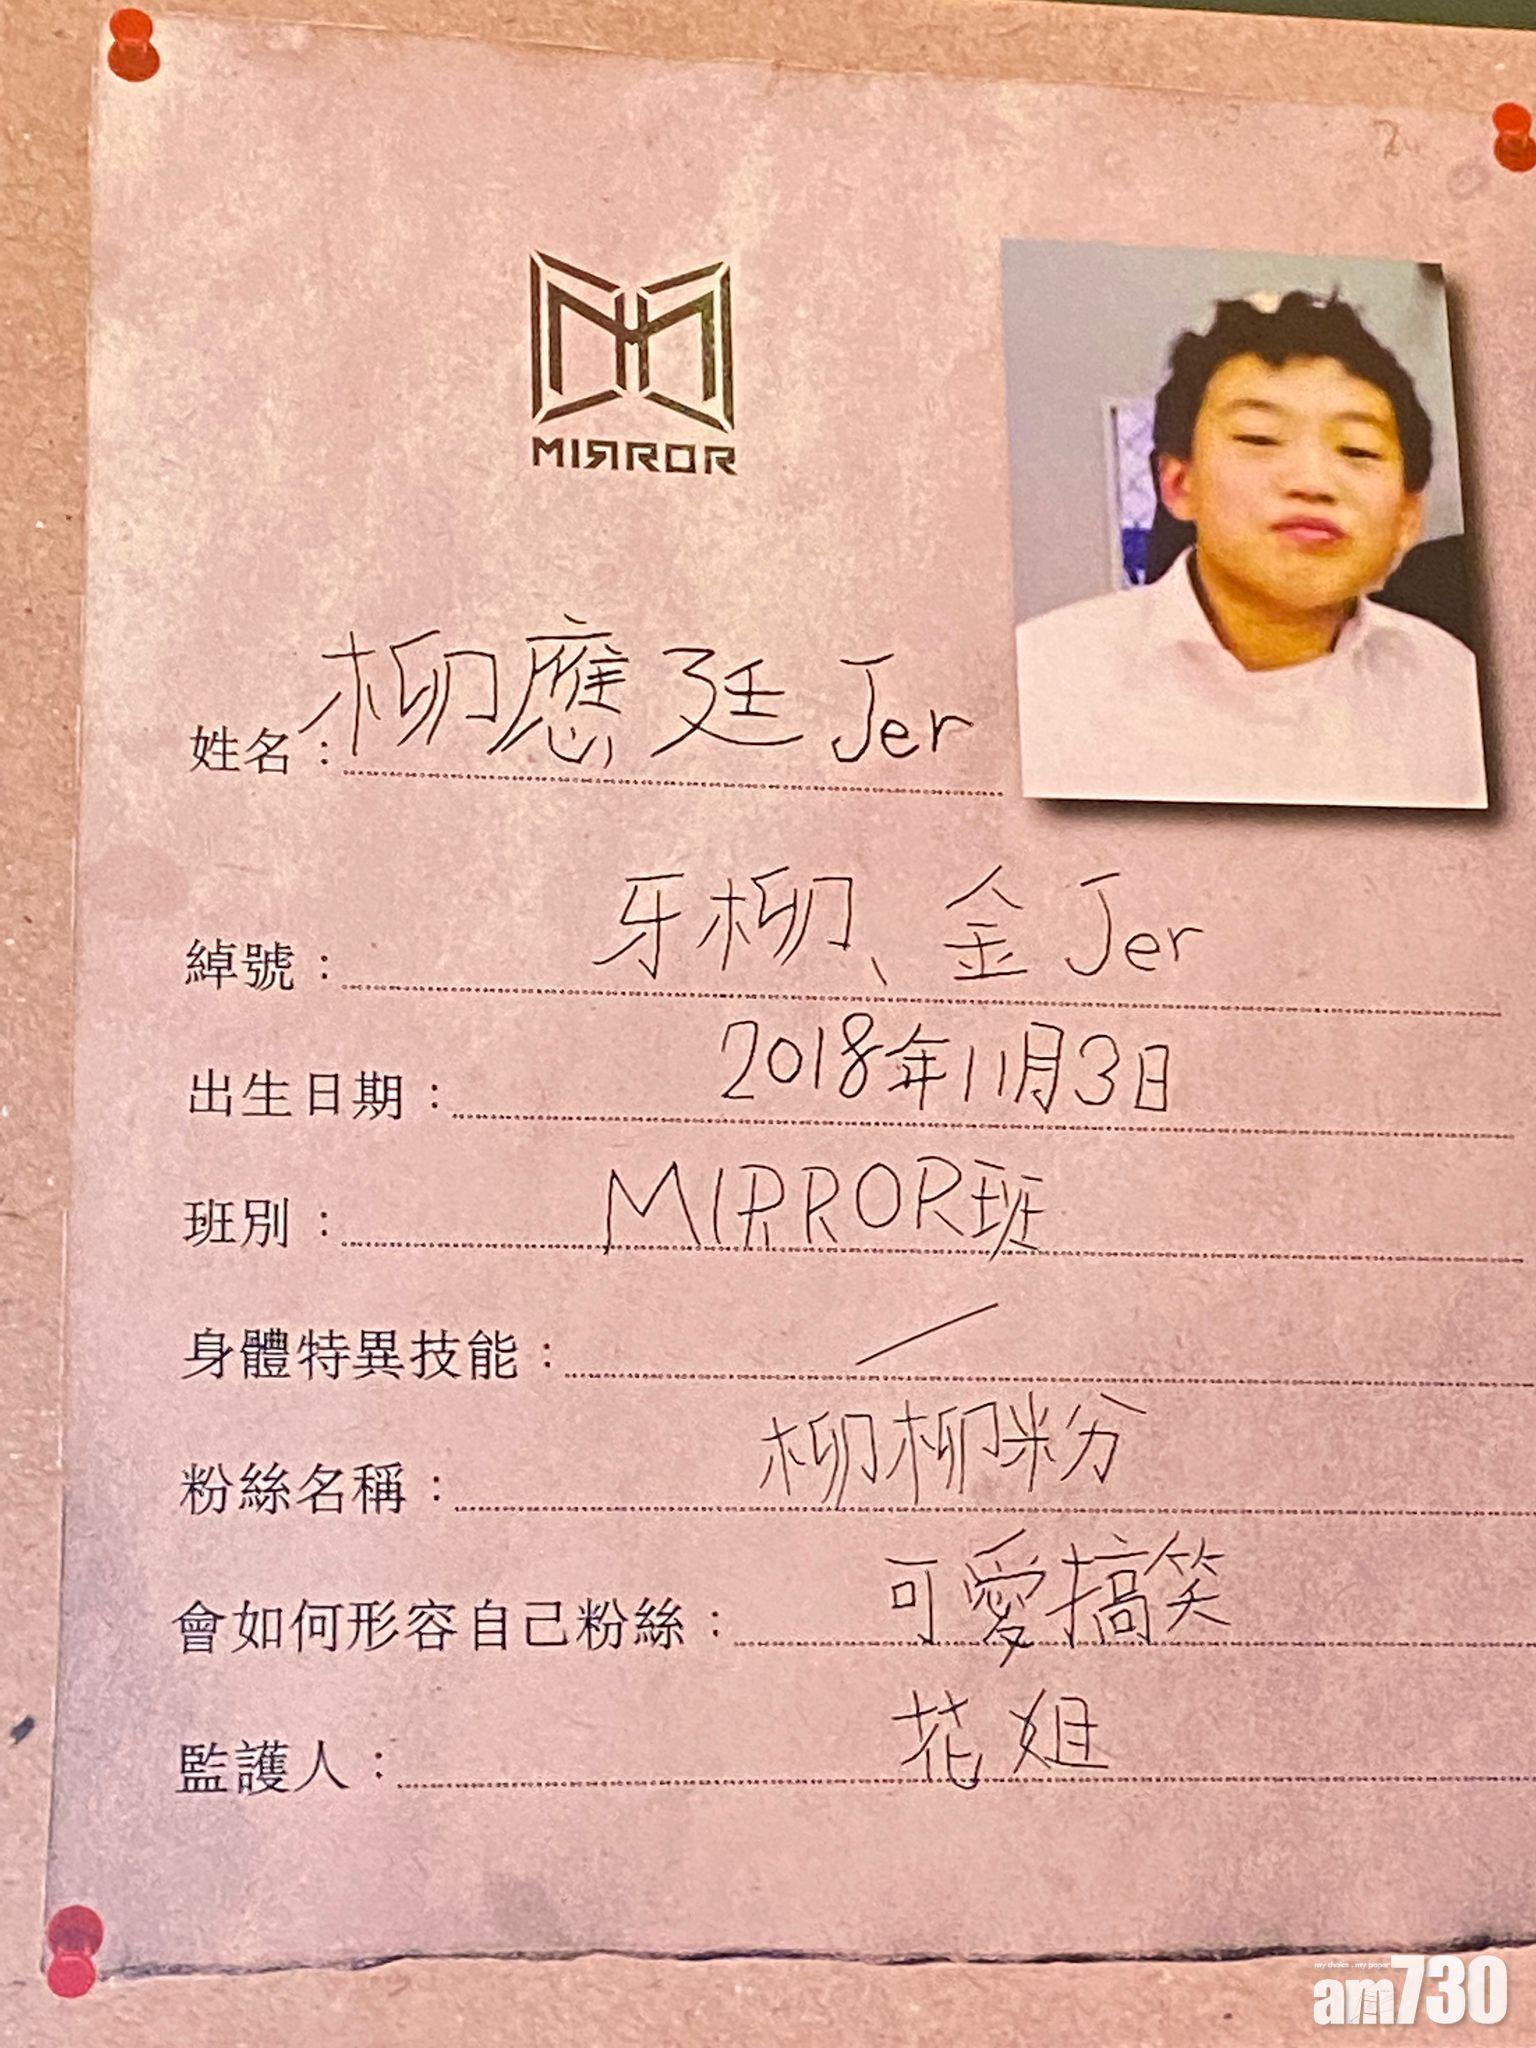 MIRROR
姓名：柳應廷 Jer
綽號：牙柳、金Jer
出生日期：2018年11月3日
班別：MIRROR班
身體特異技能：／
粉絲名稱：柳柳粉
會如何形容自己粉絲：可愛搞笑
監護人：花姐
my choice . my paper
am730